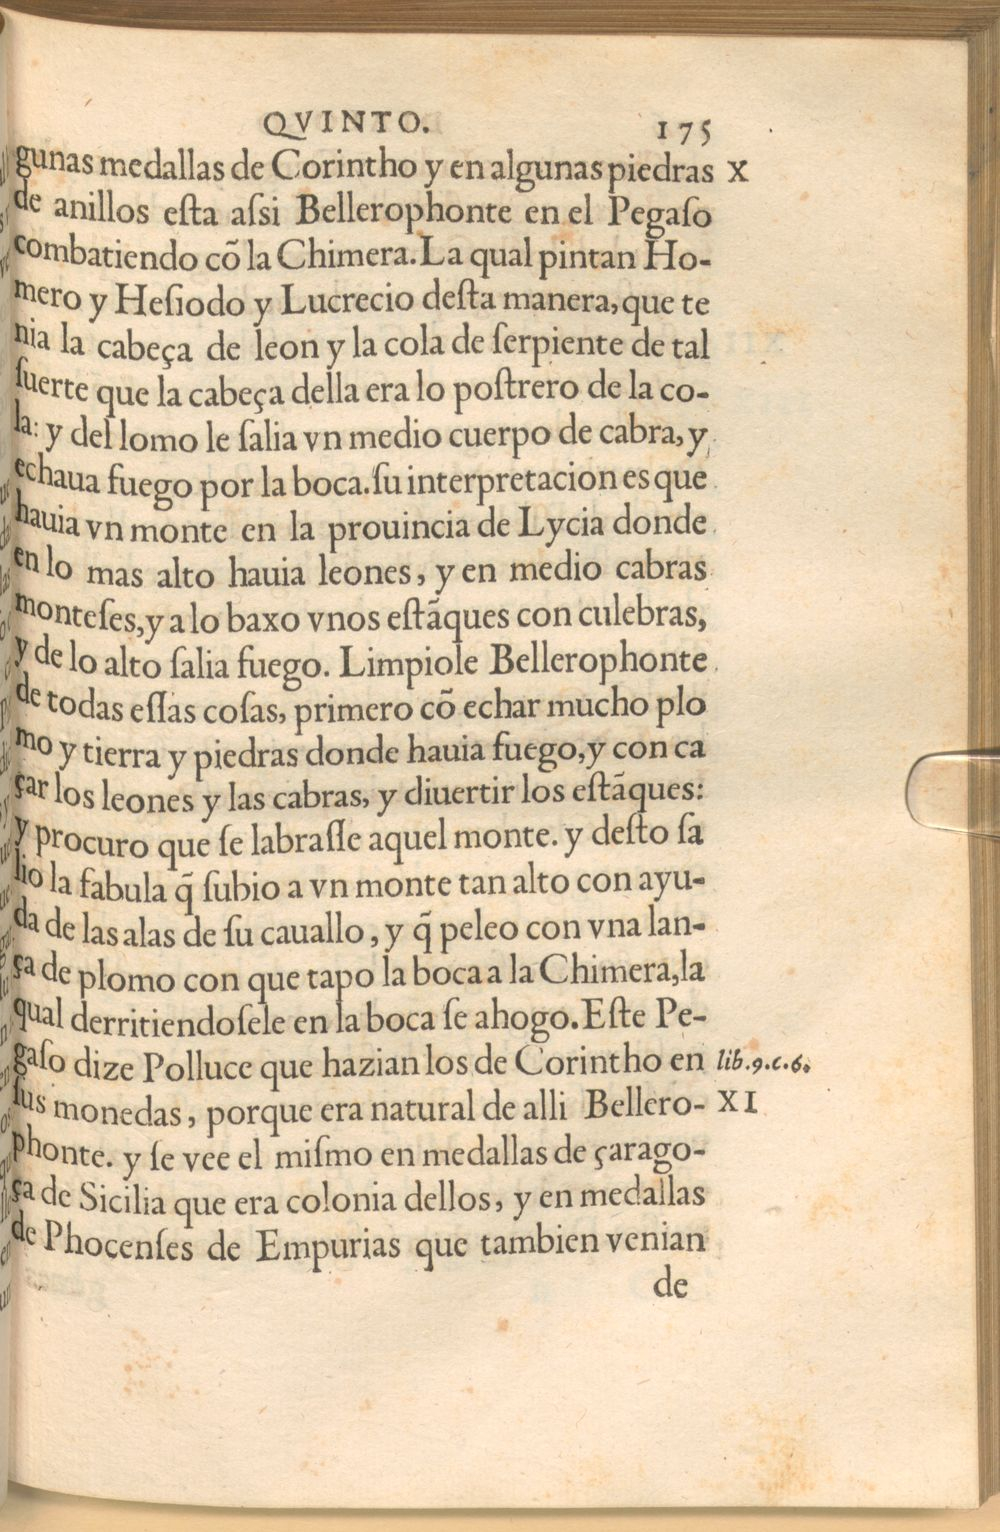 QVINTO. 175
gunas medallas de Corintho y en algunas piedras X
de anillos eſta aſsi Bellerophonte en el Pegaſo
combatiendo cõ la Chimera. La qual pintan Ho-
mero y Heſiodo y Lucrecio deſta manera, que te
nia la cabeça de leon y la cola de ſerpiente de tal
ſuerte que la cabeça della era lo poſtrero de la co-
la: y del lomo le ſalia vn medio cuerpo de cabra, y
echaua fuego por la boca. ſu interpretacion es que
hauia vn monte en la prouincia de Lycia donde
en lo mas alto hauia leones, y en medio cabras
monteſes, y a lo baxo vnos eſtãques con culebras,
y de lo alto ſalia fuego. Limpiole Bellerophonte
de todas eſſas coſas, primero cõ echar mucho plo
mo y tierra y piedras donde hauia fuego, y con ca
çar los leones y las cabras, y diuertir los eſtãques:
y procuro que ſe labraſſe aquel monte. y deſto ſa
lio la fabula q̃ ſubio a vn monte tan alto con ayu-
da de las alas de ſu cauallo, y q̃ peleo con vna lan-
ça de plomo con que tapo la boca a la Chimera, la
qual derritiendoſele en la boca ſe ahogo. Eſte Pe-
gaſo dize Polluce que hazian los de Corintho en lib. 9. c. 6.
ſus monedas, porque era natural de alli Bellero- XI
phonte. y ſe vee el miſmo en medallas de çarago-
ça de Sicilia que era colonia dellos, y en medallas
de Phocenſes de Empurias que tambien venian
de